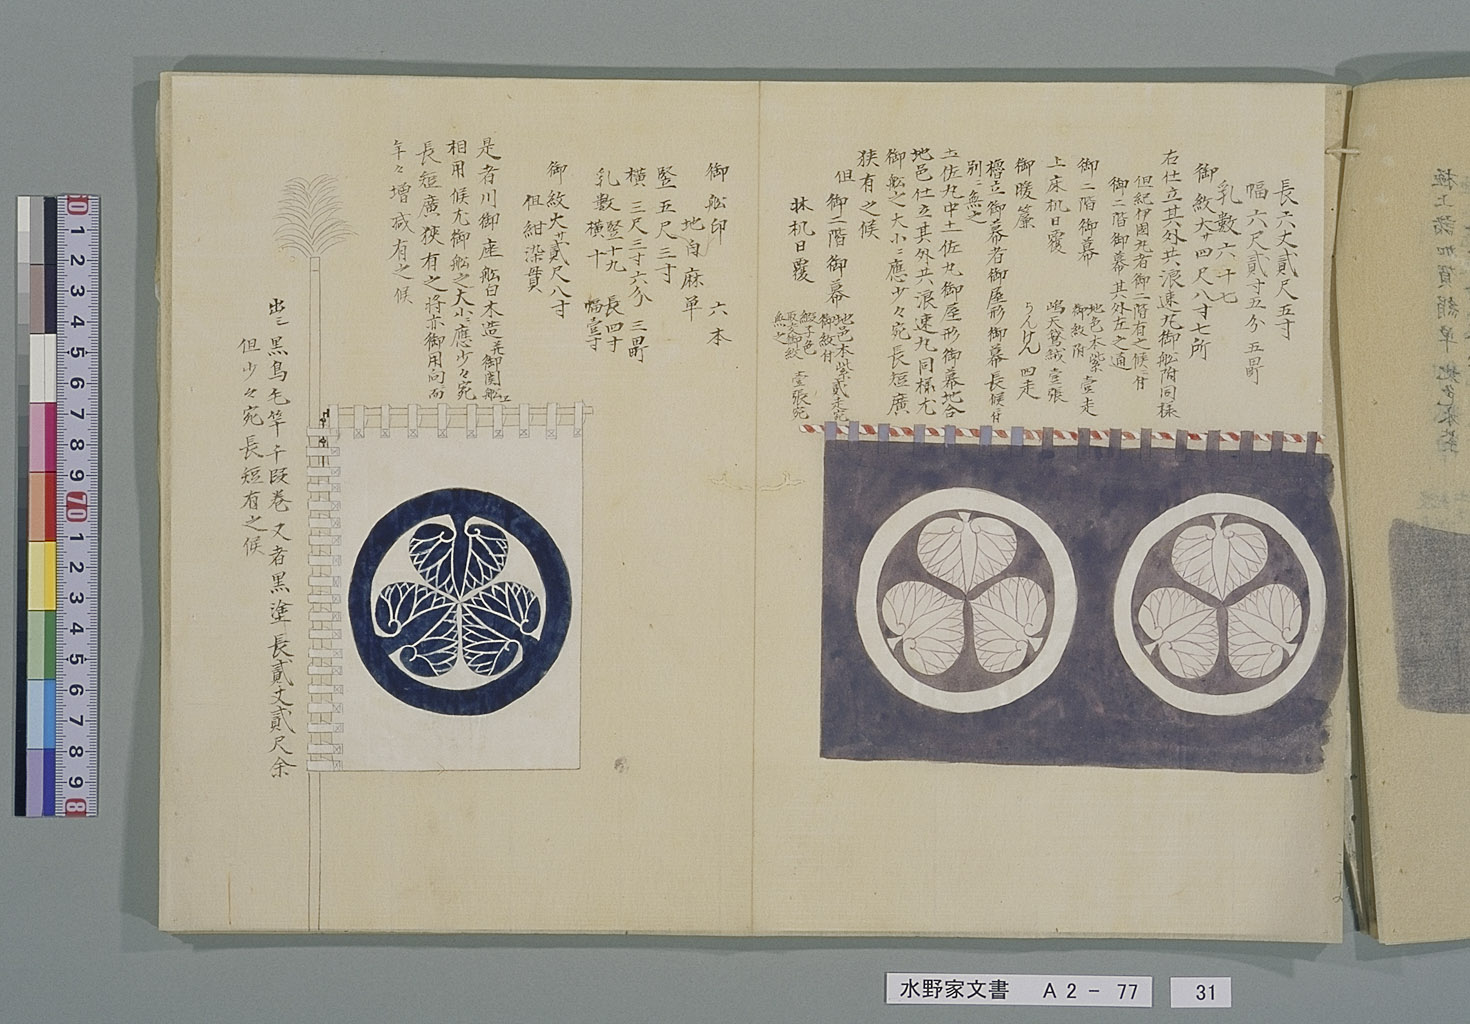 長六丈貳尺五寸
幅六尺貳寸五分 五畳
乳數六十七
御紋大サ四尺八寸七所
右仕立其外共浪速丸御船附同様
但紀伊國丸者御二階有之候ニ付
御二階御幕其外左之通
御二階御幕 地色本紫 御紋附 壹走
上床机日覆 嶋天鵞絨 壹張
御暖簾 らんけん 四走
櫓立御幕者御屋形御幕長候ニ付
別ニ無之
土佐丸中土佐丸御屋形御幕地合
地色仕立其外共浪速丸同様尤
御船之大小ニ應少々宛長短廣
狭有之候
但 御二階御幕 地色本紫 御紋付 貳走宛
床机日覆 壹張宛
御船印 六本
地白麻單
竪五尺三寸
横三尺三寸六分 三畳
乳數 竪十九 横十 長四寸 幅壹寸
御紋大サ貳尺八寸
但紺染貫
是者川御座船白木造并御關船江
相用候尤御船之大小ニ應少々宛
長短廣狭有之将亦御用向而
年々増減有之候
出シ黒鳥毛竿千段巻又者黒塗長貳丈貳尺余
但少々宛長短有之候
水野家文書 A2-77
31